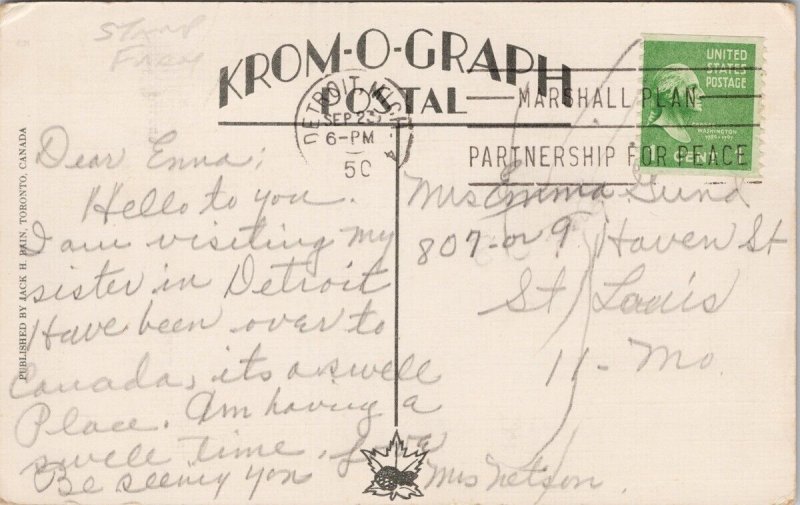 Stamp
KROM-O-GRAPH
POSTAL
UNITED
STATES
POSTAGE
WASHINGTON
1789-1797
1 CENT
DETROIT, MICH.
SEP 25
6-PM
50
MARSHALL PLAN
PARTNERSHIP FOR PEACE
PUBLISHED BY JACK H. BAIN, TORONTO, CANADA
Dear Emma;
Hello to you.
I am visiting my
sister in Detroit
Have been over to
Canada, its a swell
Place. Am having a
swell time. Love
Be seeing you Mrs Nelson.
Mrs Emma Gund
807-or 9 Haven St
St Louis
11 - Mo.